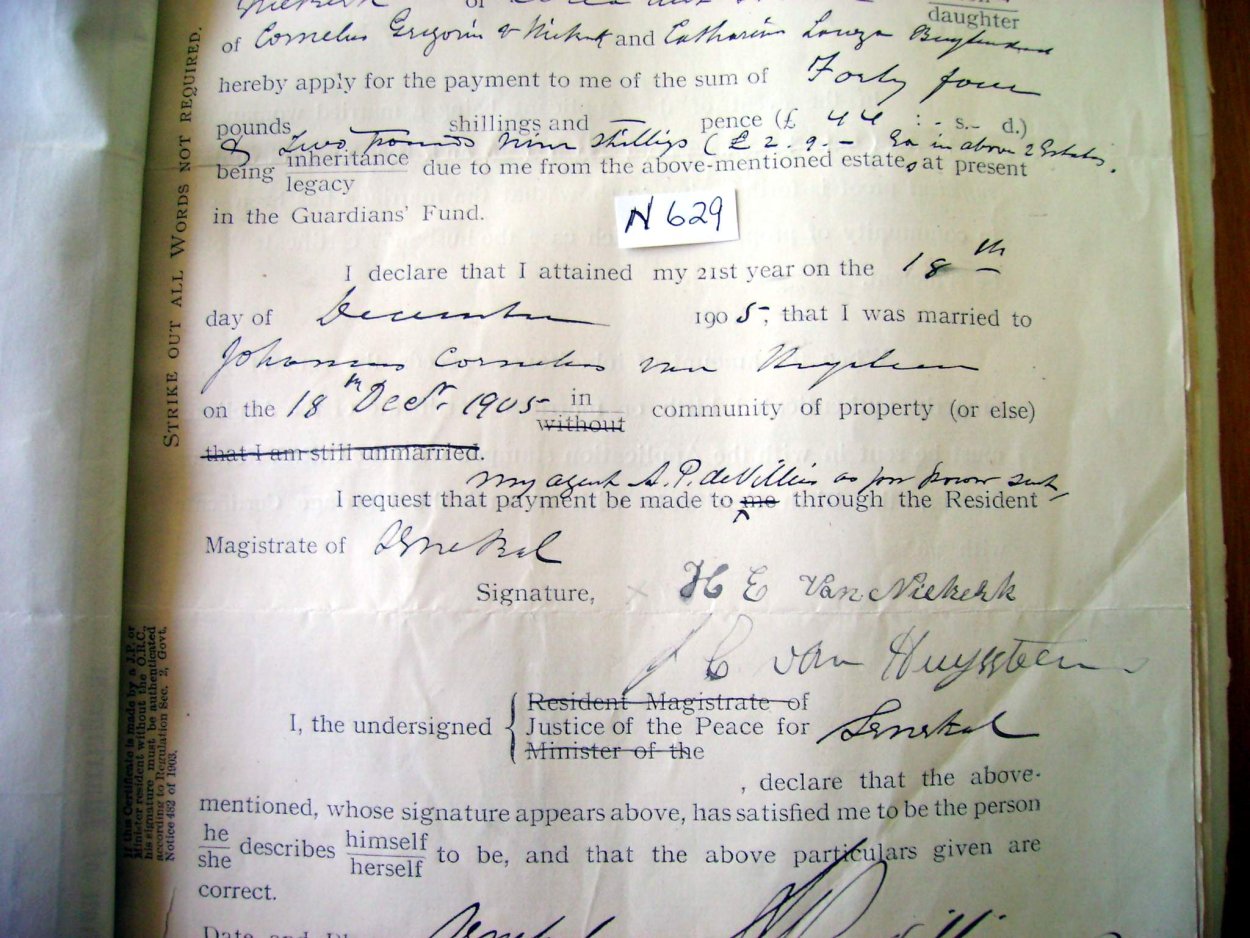 Niekerk of
daughter
of Cornelus Gregorius v Niekerk and Catharina Loweza
hereby apply for the payment to me of the sum of Forty four
pounds — shillings and — pence (£ 44 : - s. - d.)
& Two pounds nine shillings (£ 2. 9. - Ea in above 2 Estates.
being inheritance due to me from the above-mentioned estate, at present
legacy
in the Guardians' Fund.
N 629
I declare that I attained my 21st year on the 18th
day of December 1905, that I was married to
Johannes Cornelius van Huyssteen
on the 18th Decr. 1905 in community of property (or else)
without
that I am still unmarried.
my agent A. P. de Villiers as per power
I request that payment be made to me through the Resident
Magistrate of Senekal
Signature, × H E Van Niekerk
J C van Huyssteen
Resident Magistrate of
I, the undersigned { Justice of the Peace for Senekal
Minister of the
, declare that the above-
mentioned, whose signature appears above, has satisfied me to be the person
he describes himself to be, and that the above particulars given are
she herself
correct.
STRIKE OUT ALL WORDS NOT REQUIRED.
If this Certificate is made by a J.P. or
Minister resident without the O.R.C.,
his signature must be authenticated
according to Regulation Sec. 2, Govt.
Notice 482 of 1903.